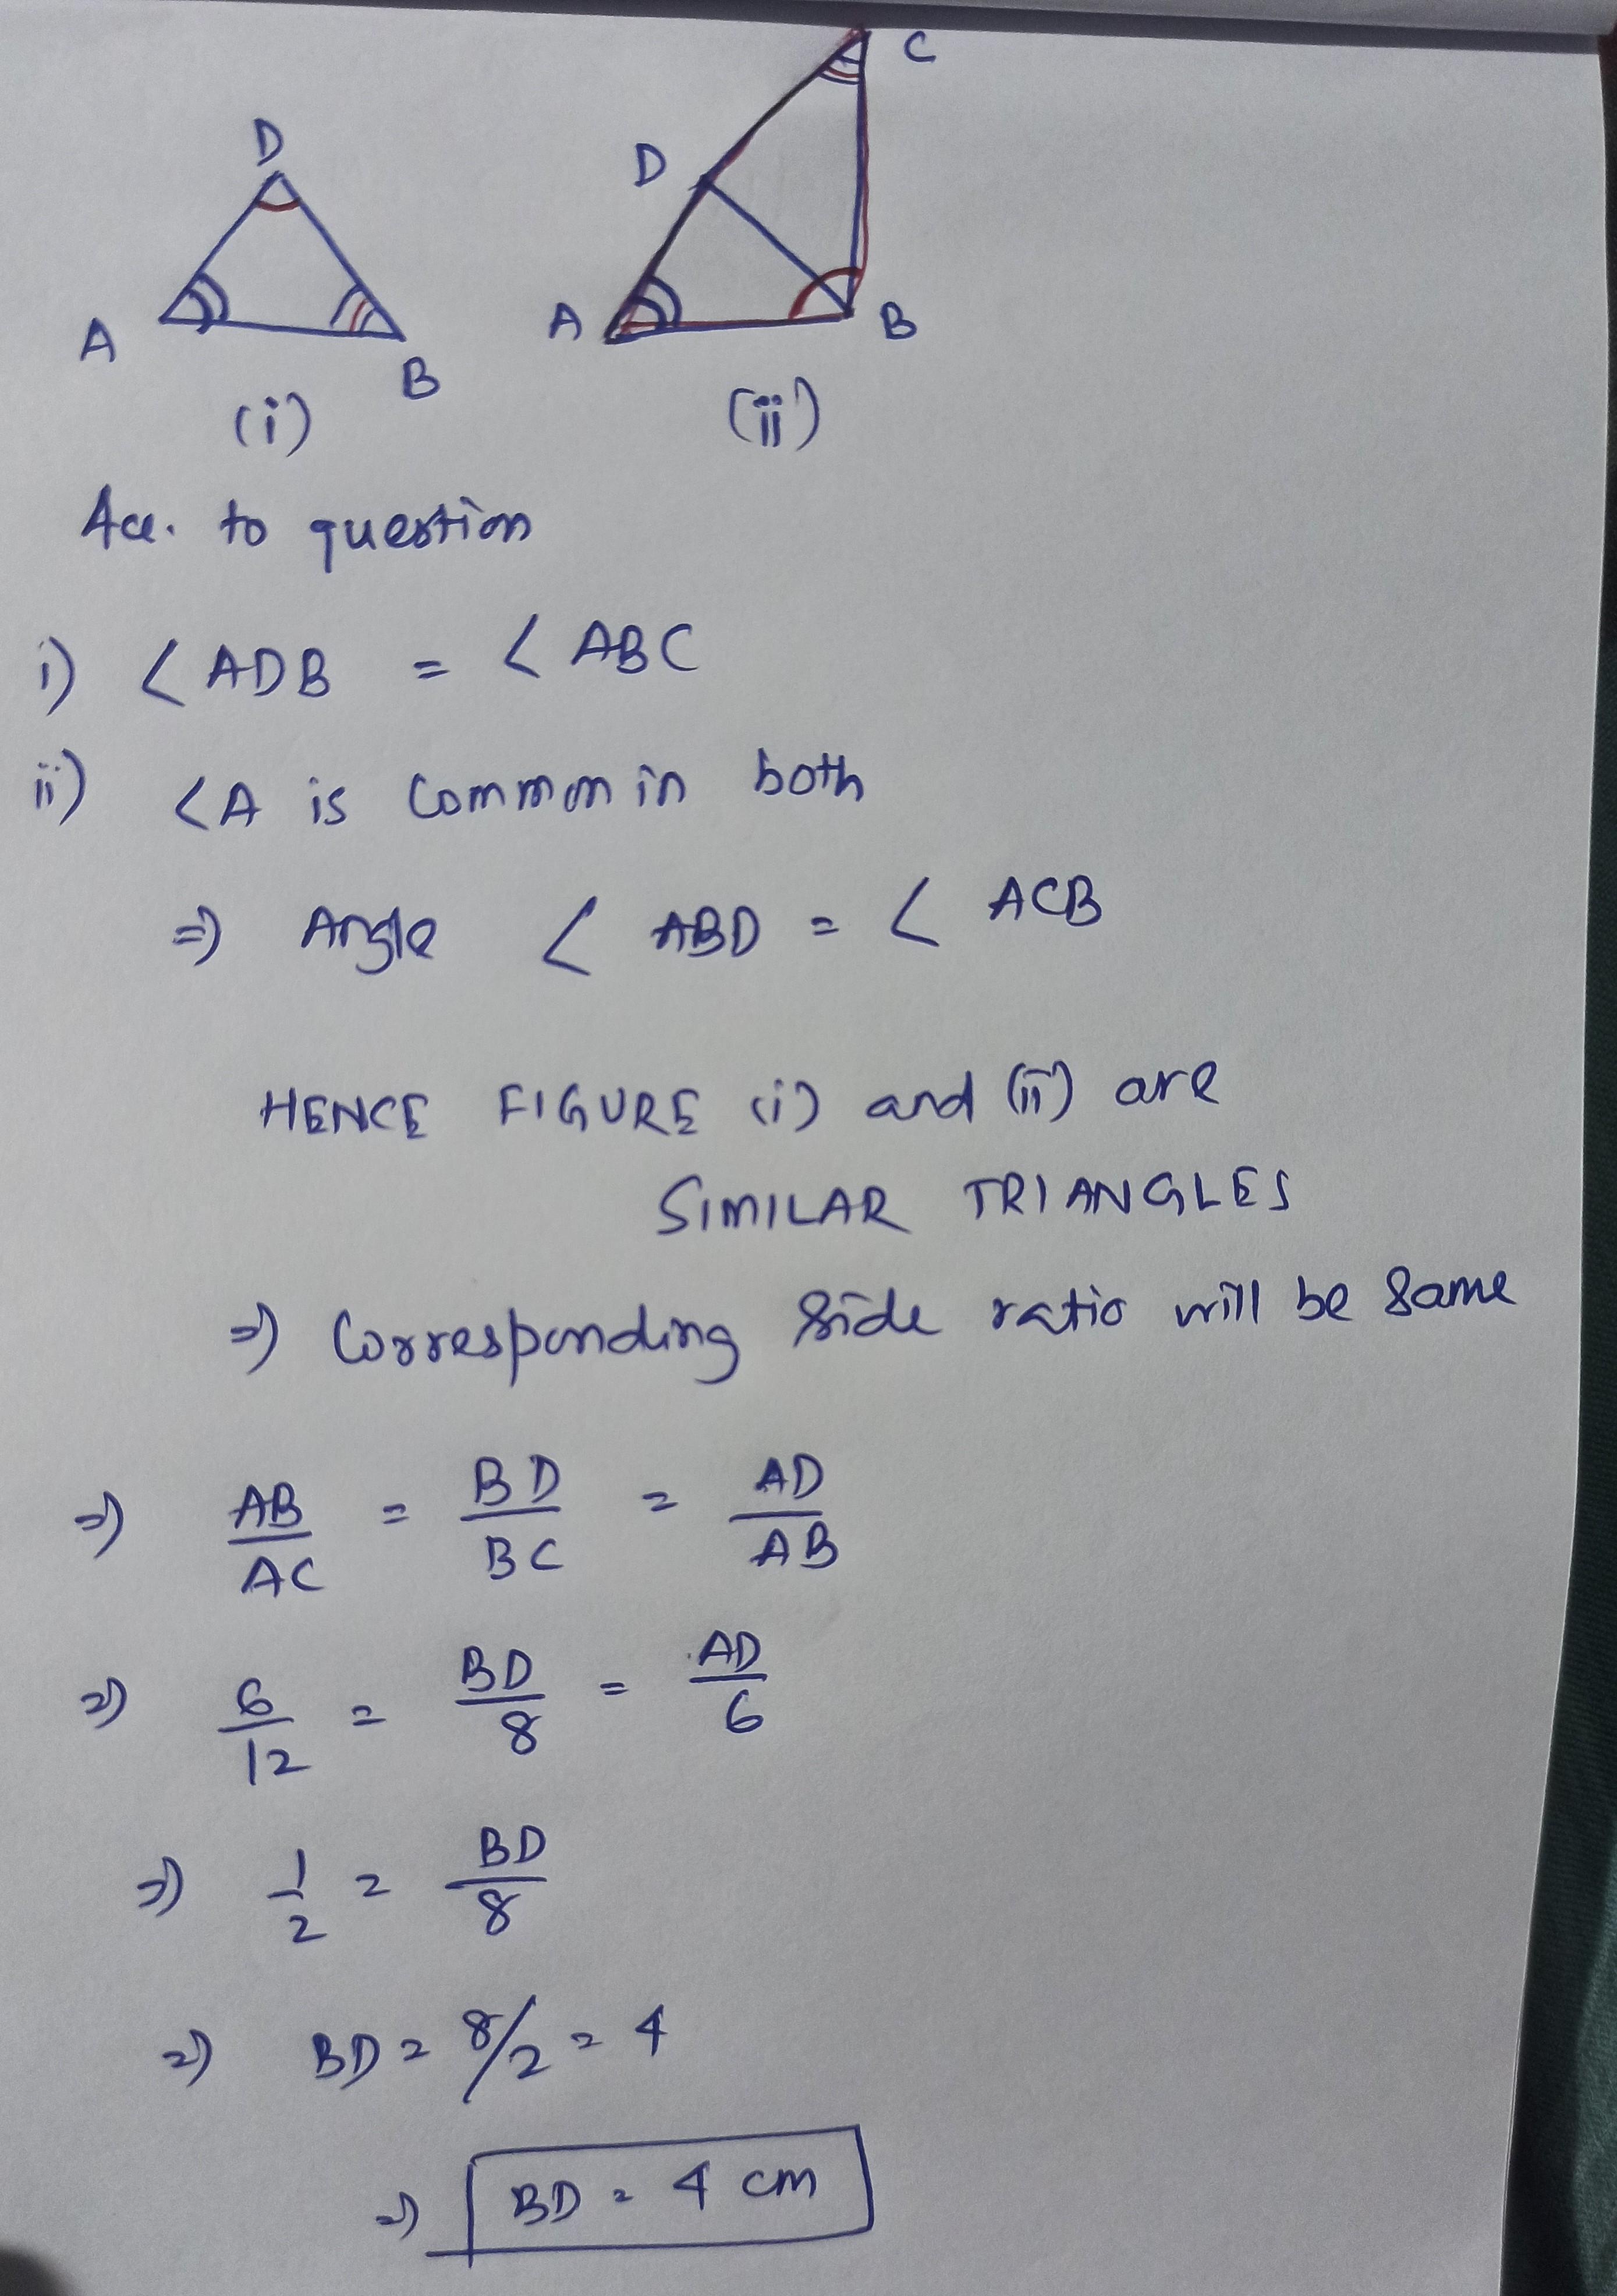 C
D
D
A
B
A
B
(i)
(ii)
Acc. to question
i) < ADB = < ABC
ii) <A is common in both
=) Angle < ABD = < ACB
HENCE FIGURE (i) and (ii) are
SIMILAR TRIANGLES
=) Corresponding side ratio will be same
=) AB/AC = BD/BC = AD/AB
=) 6/12 = BD/8 = AD/6
=) 1/2 = BD/8
=) BD = 8/2 = 4
=) BD = 4 cm